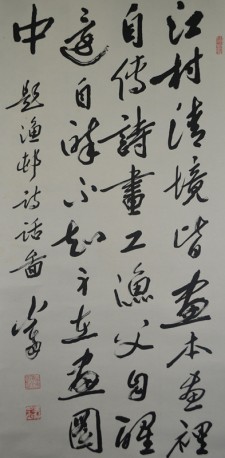 江村清境皆畫本畫裡
自傳詩畫工漁父自醒
還自醉不知身在畫圖
中
題漁邨詩話圖